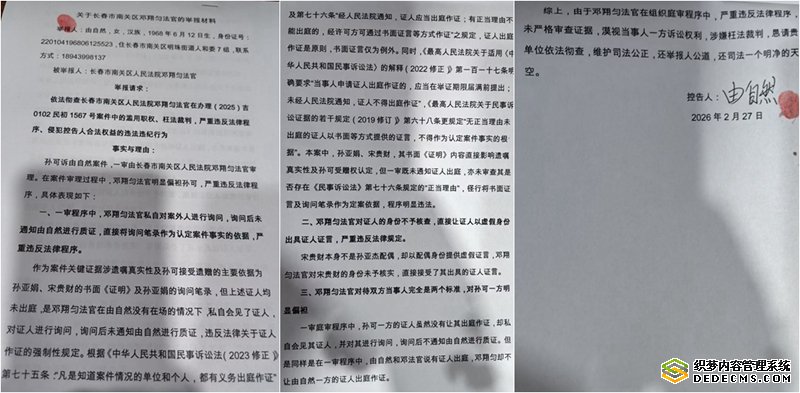 关于长春市南关区邓翔匀法官的举报材料
举报人：由自然，女，汉族，1968年6月12日生，身份证号：
220104196806125523，住长春市南关区明珠街道人和委7组，联系
方式：18943998137
被举报人：长春市南关区人民法院邓翔匀法官
举报请求：
依法彻查长春市南关区人民法院邓翔匀法官在办理（2025）吉
0102民初1567号案件中的滥用职权、枉法裁判，严重违反法律程
序、侵犯控告人合法权益的违法违纪行为
事实与理由：
孙可诉由自然案件，一审由长春市南关区人民法院邓翔匀法官审
理。在案件审理过程中，邓翔匀法官明显偏袒孙可，严重违反法律程
序，具体表现如下：
一、一审程序中，邓翔匀法官私自对案外人进行询问，询问后未
通知由自然进行质证，直接将询问笔录作为认定案件事实的依据，严
重违反法律程序。
作为案件关键证据涉遗嘱真实性及孙可接受遗赠的主要依据为
孙亚娟、宋贵财的书面《证明》及孙亚娟的询问笔录，但上述证人均
未出庭，是邓翔匀法官在由自然没有在场的情况下，私自会见了证人，
对证人进行询问，询问后未通知由自然进行质证，违反法律关于证人
作证的强制性规定。根据《中华人民共和国民事诉讼法（2023修正）》
第七十五条：“凡是知道案件情况的单位和个人，都有义务出庭作证”
及第七十六条“经人民法院通知，证人应当出庭作证；有正当理由不
能出庭的，经许可方可通过书面证言等方式作证”之规定，证人出庭
作证是原则，书面证言仅为例外。同时，《最高人民法院关于适用〈中
华人民共和国民事诉讼法〉的解释（2022修正）》第一百一十七条明
确要求“当事人申请证人出庭作证的，应当在举证期限届满前提出；
未经人民法院通知，证人不得出庭作证”，《最高人民法院关于民事诉
讼证据的若干规定（2019修订）》第六十八条更规定“无正当理由未
出庭的证人以书面等方式提供的证言，不得作为认定案件事实的根
据”。本案中，孙亚娟、宋贵财，其书面《证明》内容直接影响遗嘱
真实性及孙可受赠权认定，但一审既未通知证人出庭，亦未审查其是
否存在《民事诉讼法》第七十六条规定的“正当理由”，径行将书面证
言及询问笔录作为定案依据，程序明显违法。
二、邓翔匀法官对证人的身份不予核查，直接让证人以虚假身份
出具证人证言，严重违反法律规定。
宋贵财本身不是孙亚杰配偶，却以配偶身份提供虚假证言，邓翔
匀法官对宋贵财的身份未予核实，直接接受了其出具的证人证言。
三、邓翔匀法官对待双方当事人完全是两个标准，对孙可一方明
显偏袒
一审庭审程序中，孙可一方的证人虽然没有让其出庭作证，却私
自会见其证人，并对其进行询问，询问后不通知由自然进行质证。但
是同样是在一审程序中，由自然和邓法官说有证人出庭，邓翔匀却不
让由自然一方的证人出庭作证。
综上，由于邓翔匀法官在组织庭审程序中，严重违反法律程序，
未严格审查证据，漠视当事人一方诉讼权利，涉嫌枉法裁判，恳请贵
单位依法彻查，维护司法公正，还举报人公道，还司法一个明净的天
空。
控告人：由自然
2026年2月27日
织梦内容管理系统
DEDECMS.COM